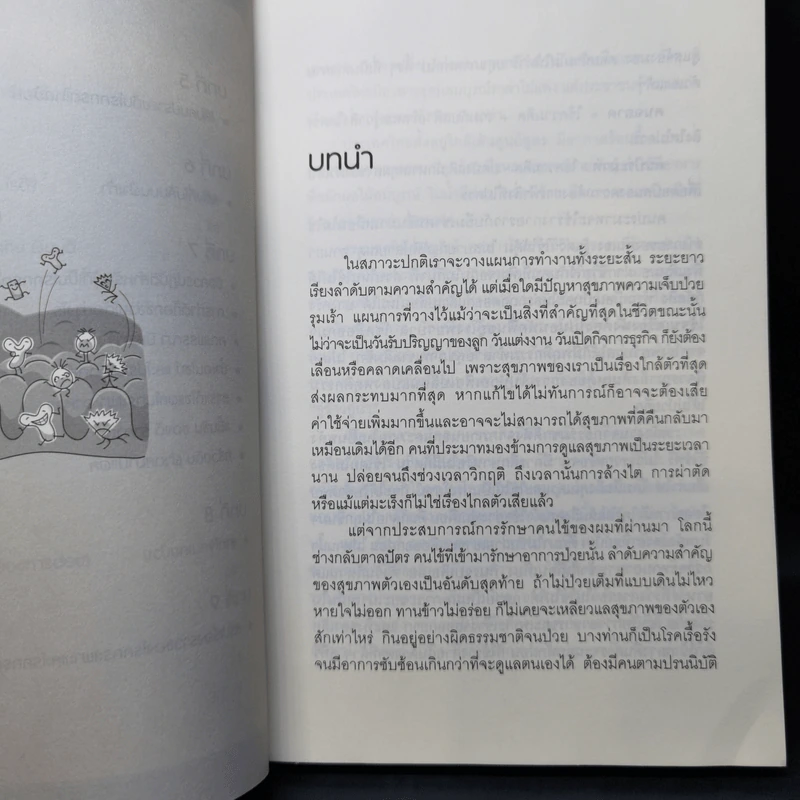 บทนำ
ในสภาวะปกติเราจะวางแผนการทำงานทั้งระยะสั้น ระยะยาว
เรียงลำดับตามความสำคัญได้ แต่เมื่อใดมีปัญหาสุขภาพความเจ็บป่วย
รุมเร้า แผนการที่วางไว้แม้ว่าจะเป็นสิ่งที่สำคัญที่สุดในชีวิตขณะนั้น
ไม่ว่าจะเป็นวันรับปริญญาของลูก วันแต่งงาน วันเปิดกิจการธุรกิจ ก็ยังต้อง
เลื่อนหรือคลาดเคลื่อนไป เพราะสุขภาพของเราเป็นเรื่องใกล้ตัวที่สุด
ส่งผลกระทบมากที่สุด หากแก้ไขได้ไม่ทันการณ์ก็อาจจะต้องเสีย
ค่าใช้จ่ายเพิ่มมากขึ้นและอาจจะไม่สามารถได้สุขภาพที่ดีคืนกลับมา
เหมือนเดิมได้อีก คนที่ประมาทมองข้ามการดูแลสุขภาพเป็นระยะเวลา
นาน ปล่อยจนถึงช่วงเวลาวิกฤติ ถึงเวลานั้นการล้างไต การผ่าตัด
หรือแม้แต่มะเร็งก็ไม่ใช่เรื่องไกลตัวเสียแล้ว
แต่จากประสบการณ์การรักษาคนไข้ของผมที่ผ่านมา โลกนี้
ช่างกลับตาลปัตร คนไข้ที่เข้ามารักษาอาการป่วยนั้น ลำดับความสำคัญ
ของสุขภาพตัวเองเป็นอันดับสุดท้าย ถ้าไม่ป่วยเต็มที่แบบเดินไม่ไหว
หายใจไม่ออก ทานข้าวไม่อร่อย ก็ไม่เคยจะเหลียวแลสุขภาพของตัวเอง
สักเท่าไหร่ กินอยู่อย่างผิดธรรมชาติจนป่วย บางท่านก็เป็นโรคเรื้อรัง
จนมีอาการซับซ้อนเกินกว่าที่จะดูแลตนเองได้ ต้องมีคนตามปรนนิบัติ